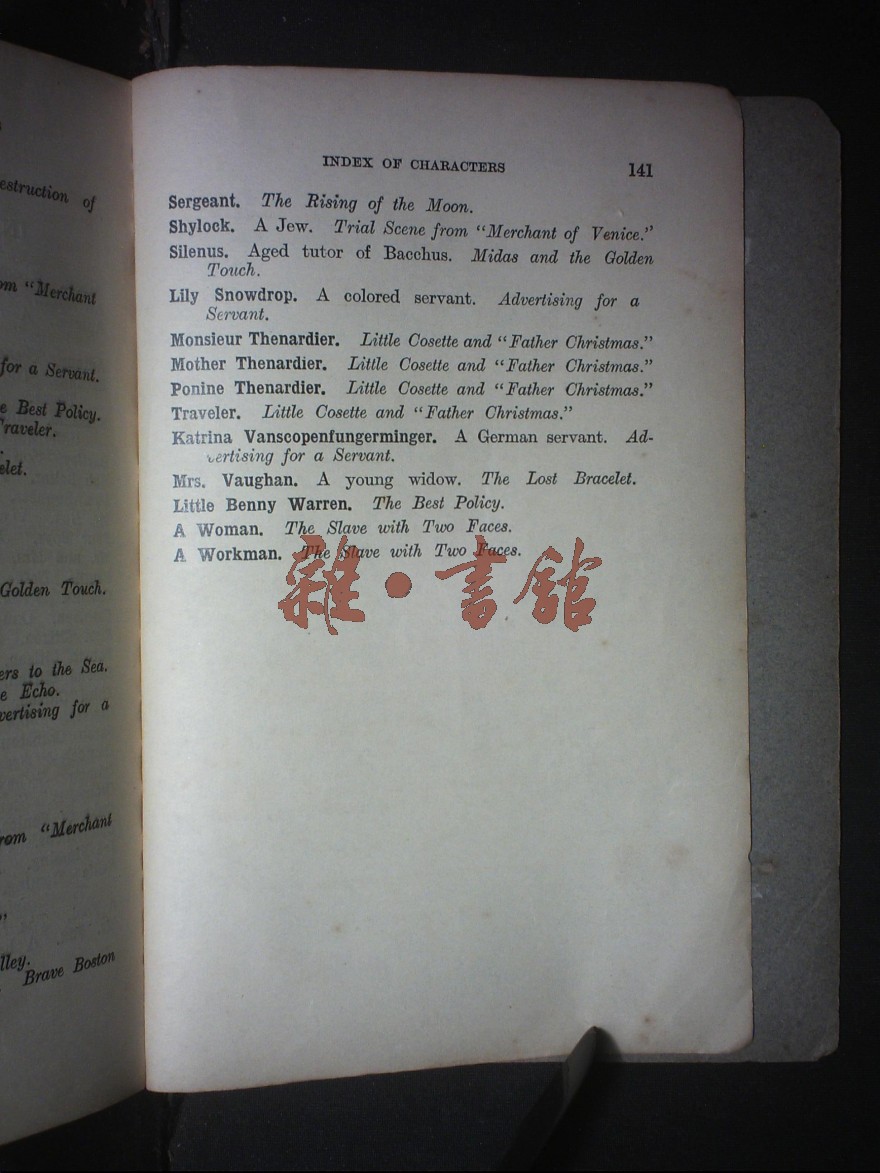 estruction of
"Merchant
for a Servant.
Best Policy.
Traveler.
Golden Touch.
to the Sea.
Echo.
for a
"Merchant
Brave Boston
INDEX OF CHARACTERS
141
Sergeant. The Rising of the Moon.
Shylock. A Jew. Trial Scene from "Merchant of Venice."
Silenus. Aged tutor of Bacchus. Midas and the Golden
Touch.
Lily Snowdrop. A colored servant. Advertising for a
Servant.
Monsieur Thenardier. Little Cosette and "Father Christmas."
Mother Thenardier. Little Cosette and "Father Christmas."
Ponine Thenardier. Little Cosette and "Father Christmas."
Traveler. Little Cosette and "Father Christmas."
Katrina Vanscopenfungerminger. A German servant. Ad-
vertising for a Servant.
Mrs. Vaughan. A young widow. The Lost Bracelet.
Little Benny Warren. The Best Policy.
A Woman. The Slave with Two Faces.
A Workman. The Slave with Two Faces.
雜·書館